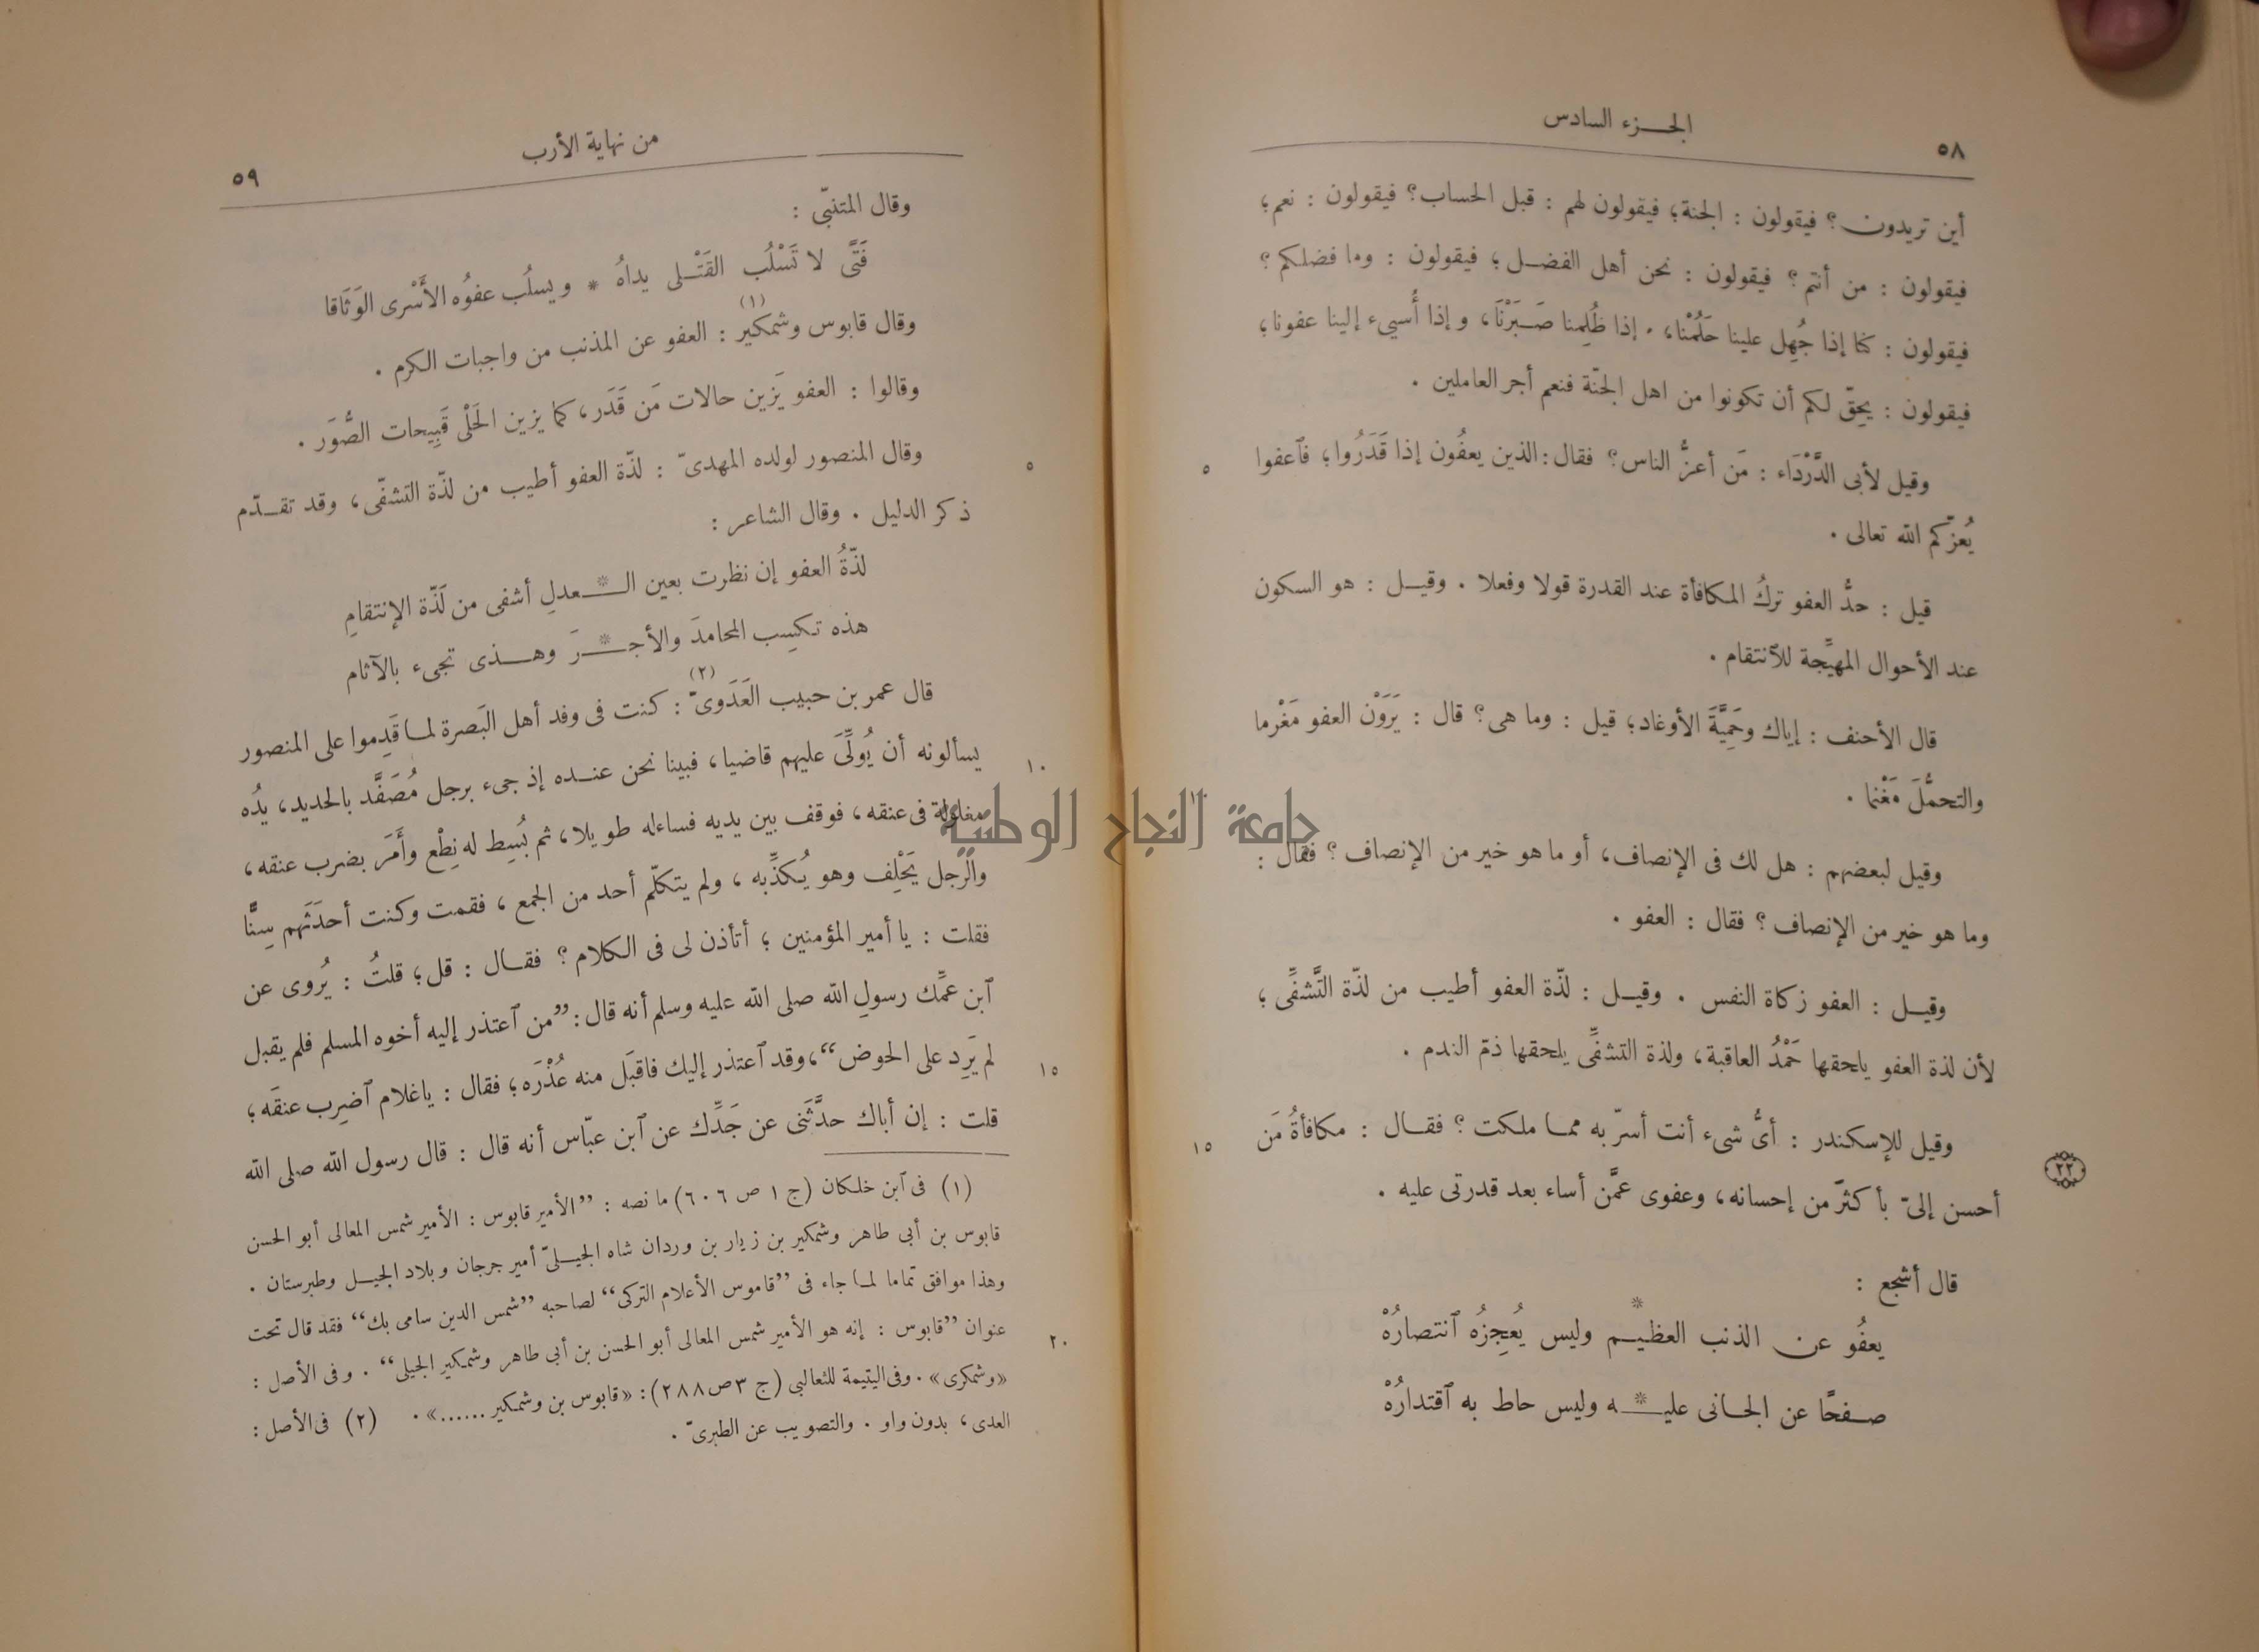 ٥٨
الجـزء السادس
أين تريدون؟ فيقولون : الجنة؛ فيقولون لهم : قبل الحساب؟ فيقولون : نعم؛
فيقولون : من أنتم؟ فيقولون : نحن أهل الفضـل؛ فيقولون : وما فضلكم؟
فيقولون : كنا إذا جُهِل علينا حَلُمْنا، إذا ظُلِمنا صَبَرْنَا، وإذا أُسيء إلينا عفونا؛
فيقولون : يحِقّ لكم أن تكونوا من اهل الجنّة فنعم أجر العاملين .
وقيل لأبى الدَّرْدَاء : مَن أعزُّ الناس؟ فقال: الذين يعفُون إذا قَدَرُوا؛ فٱعفوا
٥
يُعزّكم الله تعالى .
قيل : حدُّ العفو تركُ المكافأة عند القدرة قولا وفعلا . وقيـل : هو السكون
عند الأحوال المهيِّجة للٱنتقام .
قال الأحنف : إياك وحَمِيَّةَ الأوغاد؛ قيل : وما هى؟ قال : يَرَوْن العفو مَغْرما
والتحمُّلَ مَغْنما .
جامعة النجاح الوطنية
وقيل لبعضهم : هل لك فى الإنصاف، أو ما هو خير من الإنصاف؟ فقال :
وما هو خير من الإنصاف؟ فقال : العفو .
وقيـل : العفو زكاة النفس . وقيـل : لذّة العفو أطيب من لذّة التَّشفِّى؛
لأن لذة العفو يلحقها حَمْدُ العاقبة، ولذة التشفِّى يلحقها ذمّ الندم .
وقيل للإسكندر : أىُّ شىء أنت أسرّ به ممـا ملكت؟ فقـال : مكافأةُ مَن
١٥
٢٢
أحسن إلىّ بأكثرَ من إحسانه، وعفوى عمَّن أساء بعد قدرتى عليه .
قال أشجع :
يعفُو عن الذنب العظيـم * وليس يُعجِزُه ٱنتصارُهْ
صـفحًا عن الجـانى عليـ * ـه وليس حاط به ٱقتدارُهْ
من نهاية الأرب
٥٩
وقال المتنبّى :
فَتًى لا تَسْلُب القَتْـلى يداهُ * ويسلُب عفوُه الأَسْرى الوَثَاقا
وقال قابوس وشمكير (١) : العفو عن المذنب من واجبات الكرم .
وقالوا : العفو يَزين حالات مَن قَدَر، كما يزين الحَلْى قَبِيحات الصُّوَر .
وقال المنصور لولده المهدىّ : لذّة العفو أطيب من لذّة التشفّى، وقد تقـدّم
٥
ذكر الدليل . وقال الشاعر :
لذّةُ العفو إن نظرت بعين الـ * ـعدلِ أشفى من لَذّة الإنتقامِ
هذه تكسِب المحامدَ والأجـ * ـرَ وهـذى تجىء بالآثام
قال عمر بن حبيب العَدَوىّ (٢) : كنت فى وفد أهل البَصرة لمـا قَدِموا على المنصور
يسألونه أن يُولِّىَ عليهم قاضيا، فبينا نحن عنـده إذ جىء برجل مُصَفَّد بالحديد، يدُه
١٠
مغلولة فى عنقه، فوقف بين يديه فساءله طويلا، ثم بُسِط له نِطْع وأَمَر بضرب عنقه،
والرجل يَحْلِف وهو يُكذِّبه، ولم يتكلّم أحد من الجمع، فقمت وكنت أحدَثَهم سِنًّا
فقلت : يا أمير المؤمنين؛ أتأذن لى فى الكلام؟ فقـال : قل؛ قلتُ : يُروى عن
ٱبن عمِّك رسولِ الله صلى الله عليه وسلم أنه قال: ”من ٱعتذر إليه أخوه المسلم فلم يقبل
لم يَرِد على الحوض“، وقد ٱعتذر إليك فاقبَل منه عُذْرَه؛ فقال : ياغلام ٱضرِب عنقَه؛
١٥
قلت : إن أباك حدَّثَنى عن جَدِّك عن ٱبن عبّاس أنه قال : قال رسول الله صلى الله
(١) فى ٱبن خلكان (ج ١ ص ٦٠٦) ما نصه : ”الأمير قابوس : الأمير شمس المعالى أبو الحسن
قابوس بن أبى طاهر وشمكير بن زيار بن وردان شاه الجيـلىّ أمير جرجان وبلاد الجيـل وطبرستان .
وهذا موافق تماما لمـا جاء فى ”قاموس الأعلام التركى“ لصاحبه ”شمس الدين سامى بك“ فقد قال تحت
عنوان ”قابوس : إنه هو الأمير شمس المعالى أبو الحسن بن أبى طاهر وشمكير الجيلى“ . وفى الأصل :
٢٠
«وشمكرى» . وفى اليتيمة للثعالبي (ج ٣ ص ٢٨٨): «قابوس بن وشمكير......» . (٢) فى الأصل :
العدى، بدون واو . والتصويب عن الطبرىّ .